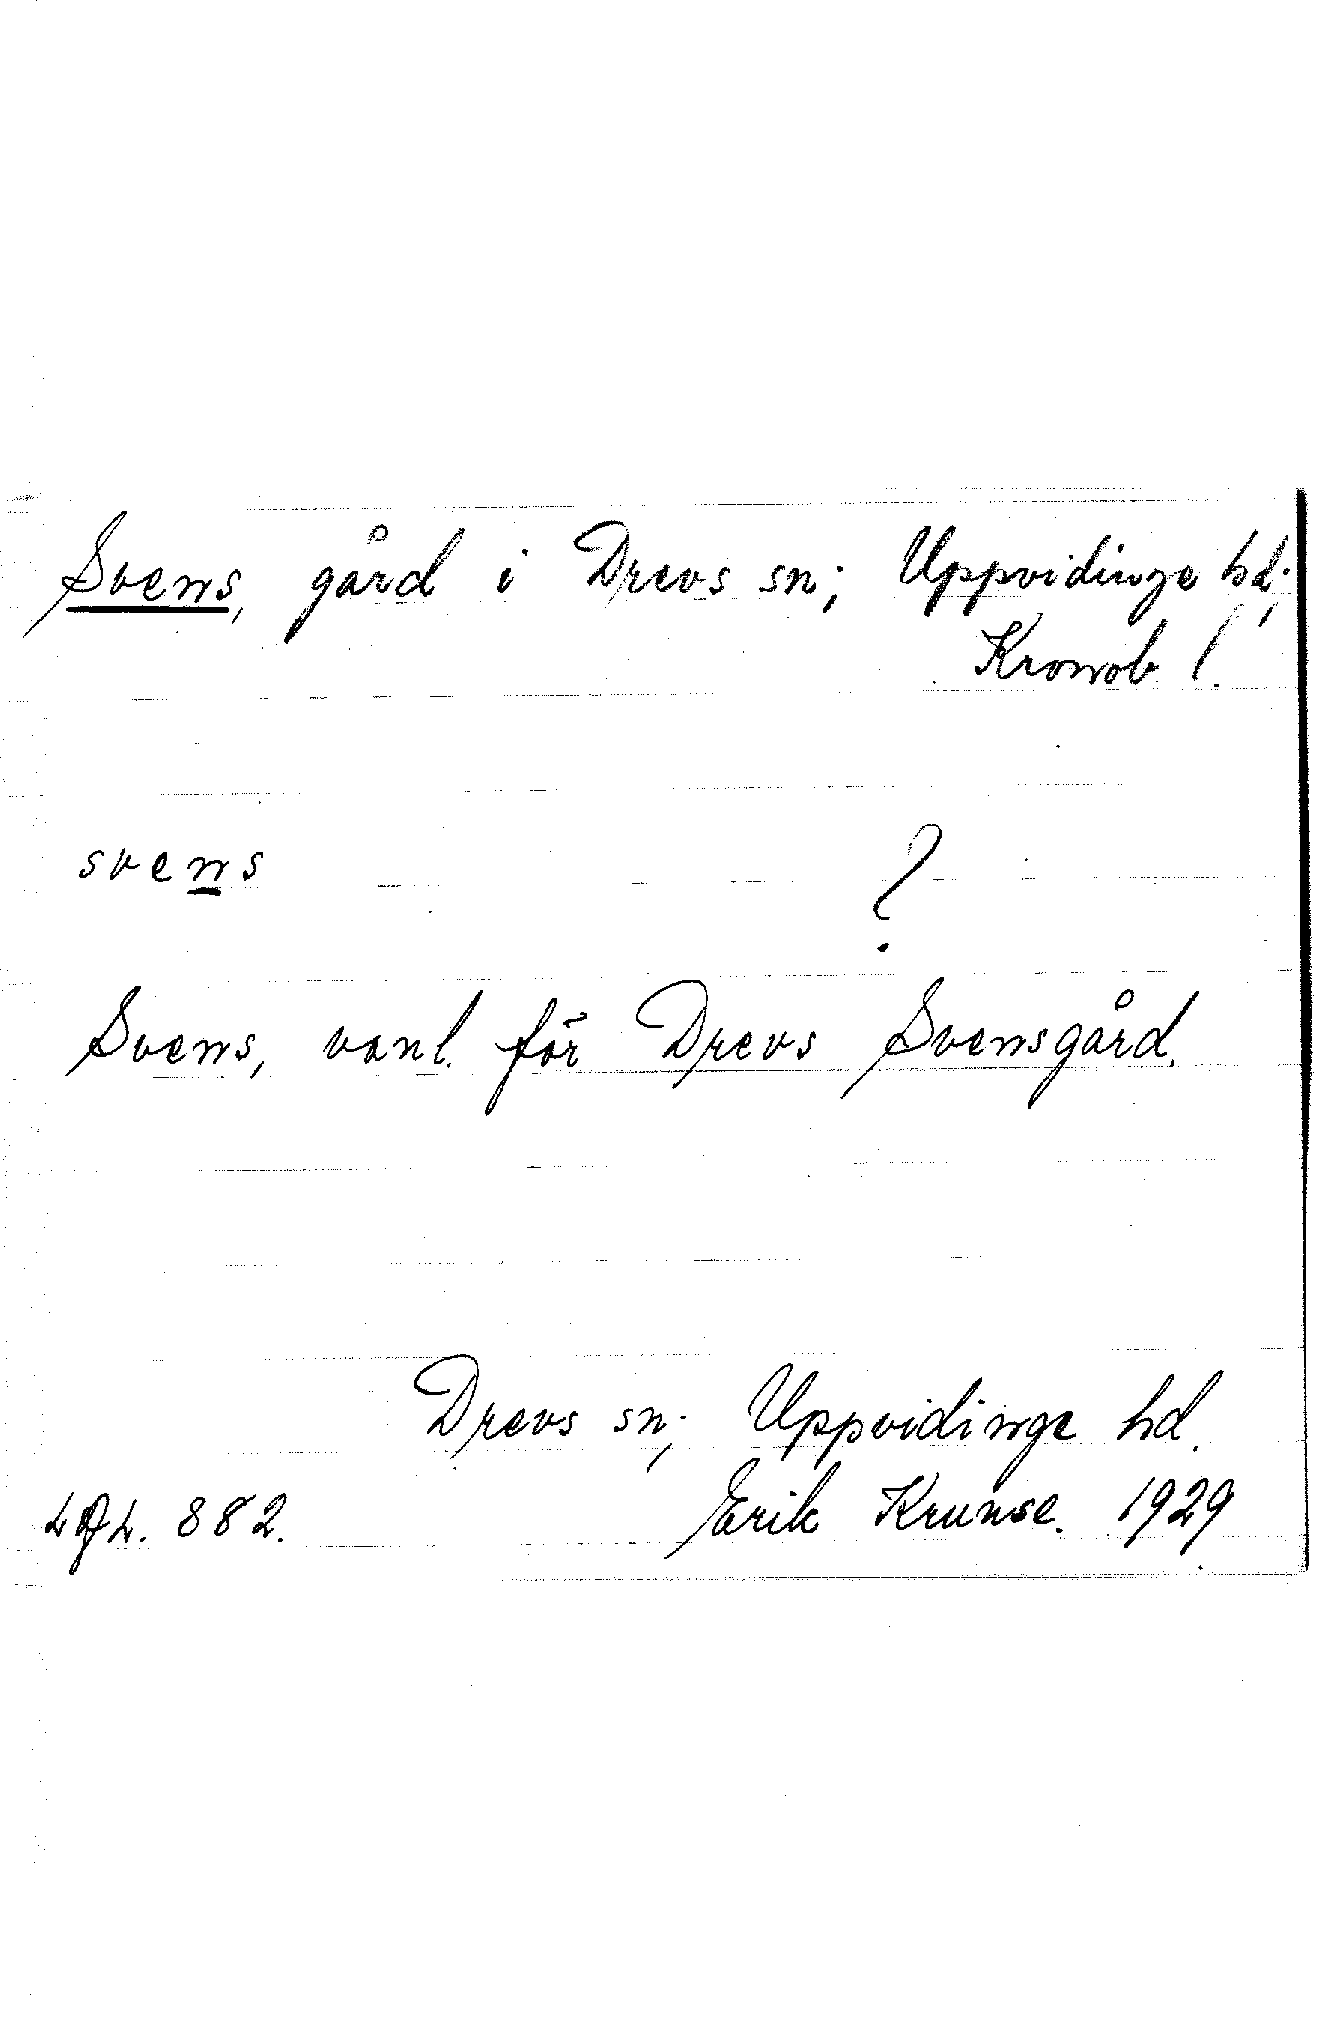 Svens, gård i Drevs sn; Uppvidinge hd;
Kronob l.
svens ?
Svens, vanl. för Drevs Svensgård.
Drevs sn; Uppvidinge hd.
882. Erik Krunse. 1929